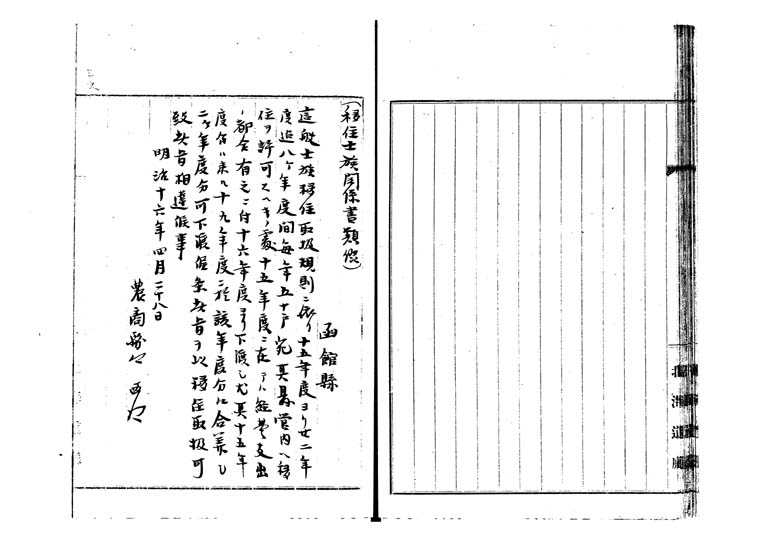 (移住士族関係書類綴)
函館縣
這般士族移住取扱規則ニ依リ十五年度ヨリ廿二年
度迄八ケ年度間毎年五十戸宛其縣管内ヘ移
住ヲ許可スヘキノ處十五年度ニ在テハ經費支出
ノ都合有之ニ付十六年度ヨリ下渡シ尤其十五年
度分ハ来ル十九年度ニ於該年度分に合算シ
二ケ年度分可下渡候条此旨ヲ以移住取扱可
致此旨相達候事
明治十六年四月二十八日
農商務
北海道廳